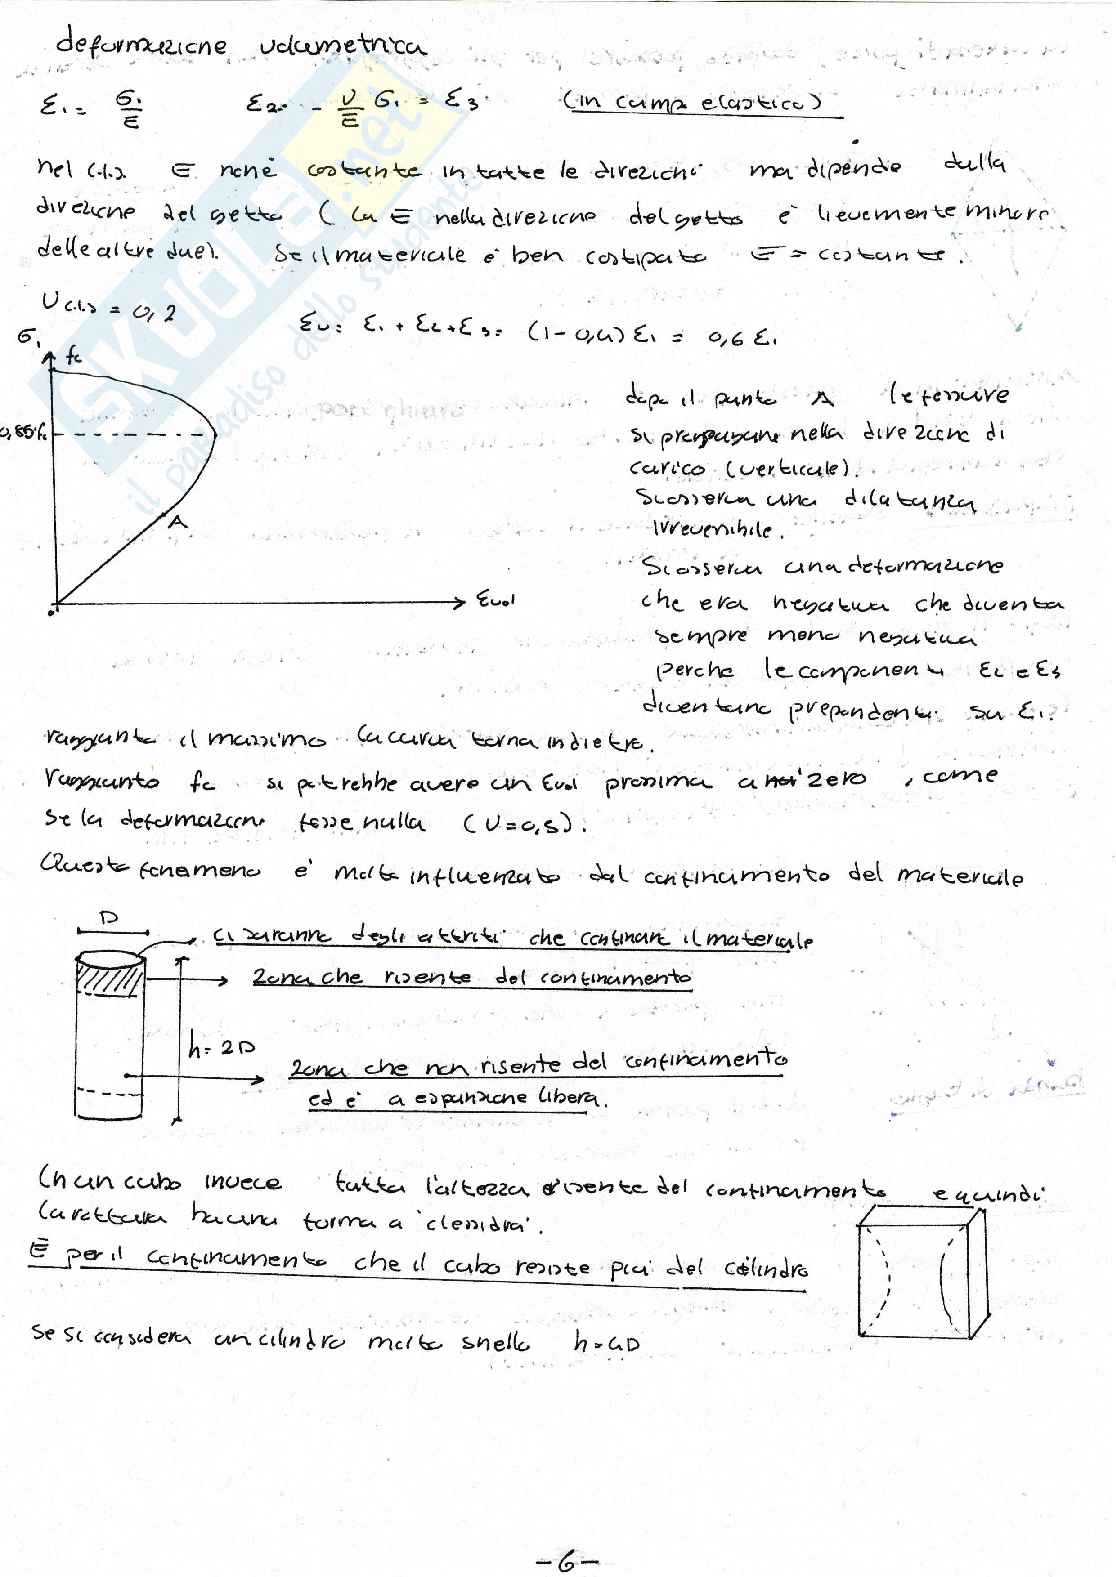 deformazione volumetrica
ε₁ = σ₁/E ε₂ = - ν/E σ₁ = ε₃ (in campo elastico)
nel cls E non è costante in tutte le direzioni ma dipende dalla
direzione del getto ( la E nella direzione del getto è lievemente minore
delle altre due). Se il materiale è ben costipato E = costante.
ν cls = 0,2
εv = ε₁ + ε₂ + ε₃ = (1-0,4) ε₁ = 0,6 ε₁
σ₁
fc
0,85 fc
A
εvol
dopo il punto A le fessure
si propagano nella direzione di
carico (verticale).
Si osserva una dilatanza
irreversibile.
Si osserva una deformazione
che era negativa che diventa
sempre meno negativa
perche le componenti ε₂ e ε₃
diventano preponderanti su ε₁.
raggiunto il massimo la curva torna indietro.
Raggiunto fc si potrebbe avere un εvol prossima a zero, come
se la deformazione fosse nulla (ν=0,5).
Questo fenomeno è molto influenzato dal confinamento del materiale
D
ci saranno degli attriti che confinano il materiale
zona che risente del confinamento
h = 2D
zona che non risente del confinamento
ed è a espansione libera.
In un cubo invece tutta l'altezza risente del confinamento e quindi
la rottura ha una forma a 'clessidra'.
È per il confinamento che il cubo resiste più del cilindro
Se si considera un cilindro molto snello h=4D
-6-
SKUOLA.net
il paradiso dello studente